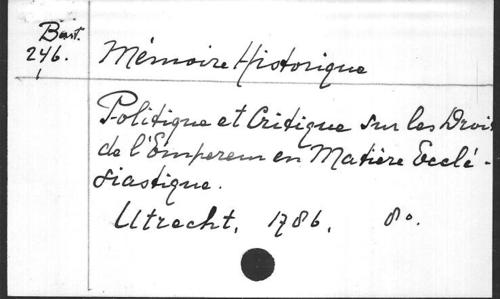 Bast.
246.
Mémoire Historique
Politique et Critique sur les Droits
de l'Empereur en Matière Ecclé-
siastique.
Utrecht, 1786. 8o.